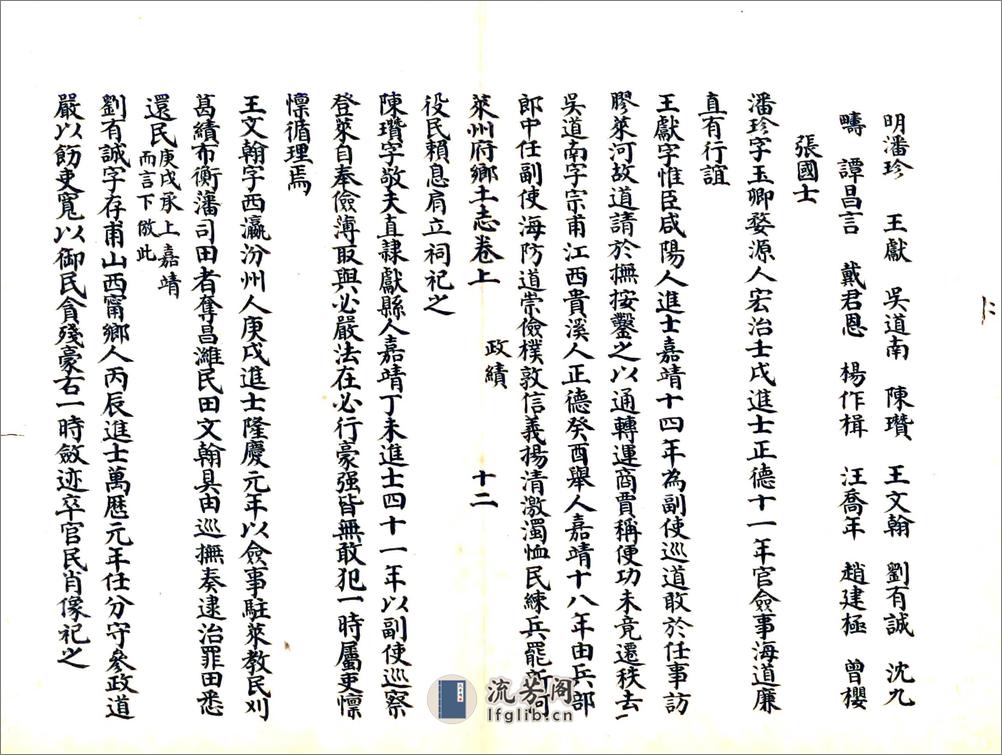 明潘珍　王獻　吳道南　陳瓚　王文翰　劉有誠　沈九
疇　譚昌言　戴君恩　楊作楫　汪喬年　趙建極　曾櫻
張國士
潘珍字玉卿婺源人宏治士戌進士正德十一年官僉事海道廉
直有行誼
王獻字惟臣咸陽人進士嘉靖十四年為副使巡道敢於任事訪
膠萊河故道請於撫按鑿之以通轉運商賈稱便功未竟遷秩去
吳道南字宗甫江西貴溪人正德癸酉舉人嘉靖十八年由兵部
郎中任副使海防道崇儉樸敦信義揚清激濁恤民練兵罷河
萊州府鄉土志卷上　政績　十二
役民賴息肩立祠祀之
陳瓚字敬夫直隸獻縣人嘉靖丁未進士四十一年以副使巡察
登萊自奉儉薄取與必嚴法在必行豪强皆無敢犯一時屬吏懍
懍循理焉
王文翰字西瀛汾州人庚戌進士隆慶元年以僉事駐萊教民刈
葛績布衡藩司田者奪昌濰民田文翰具由巡撫奏逮治罪田悉
還民庚戌承上嘉靖而言下倣此
劉有誠字存甫山西甯鄉人丙辰進士萬歷元年任分守參政道
嚴以飭吏寬以御民貪殘豪右一時斂迹卒官民肖像祀之
流芳閣
lfglib.cn